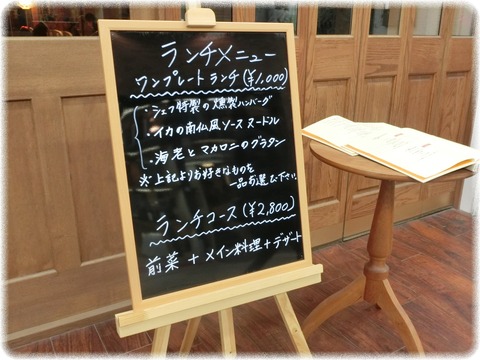 ランチメニュー
ワンプレートランチ(¥1,000)
・シェフ特製の燻製ハンバーグ
・イカの南仏風ソース ヌードル
・海老とマカロニのグラタン
※上記よりお好きなものを
一品お選び下さい
ランチコース(¥2,800)
前菜+メイン料理+デザート